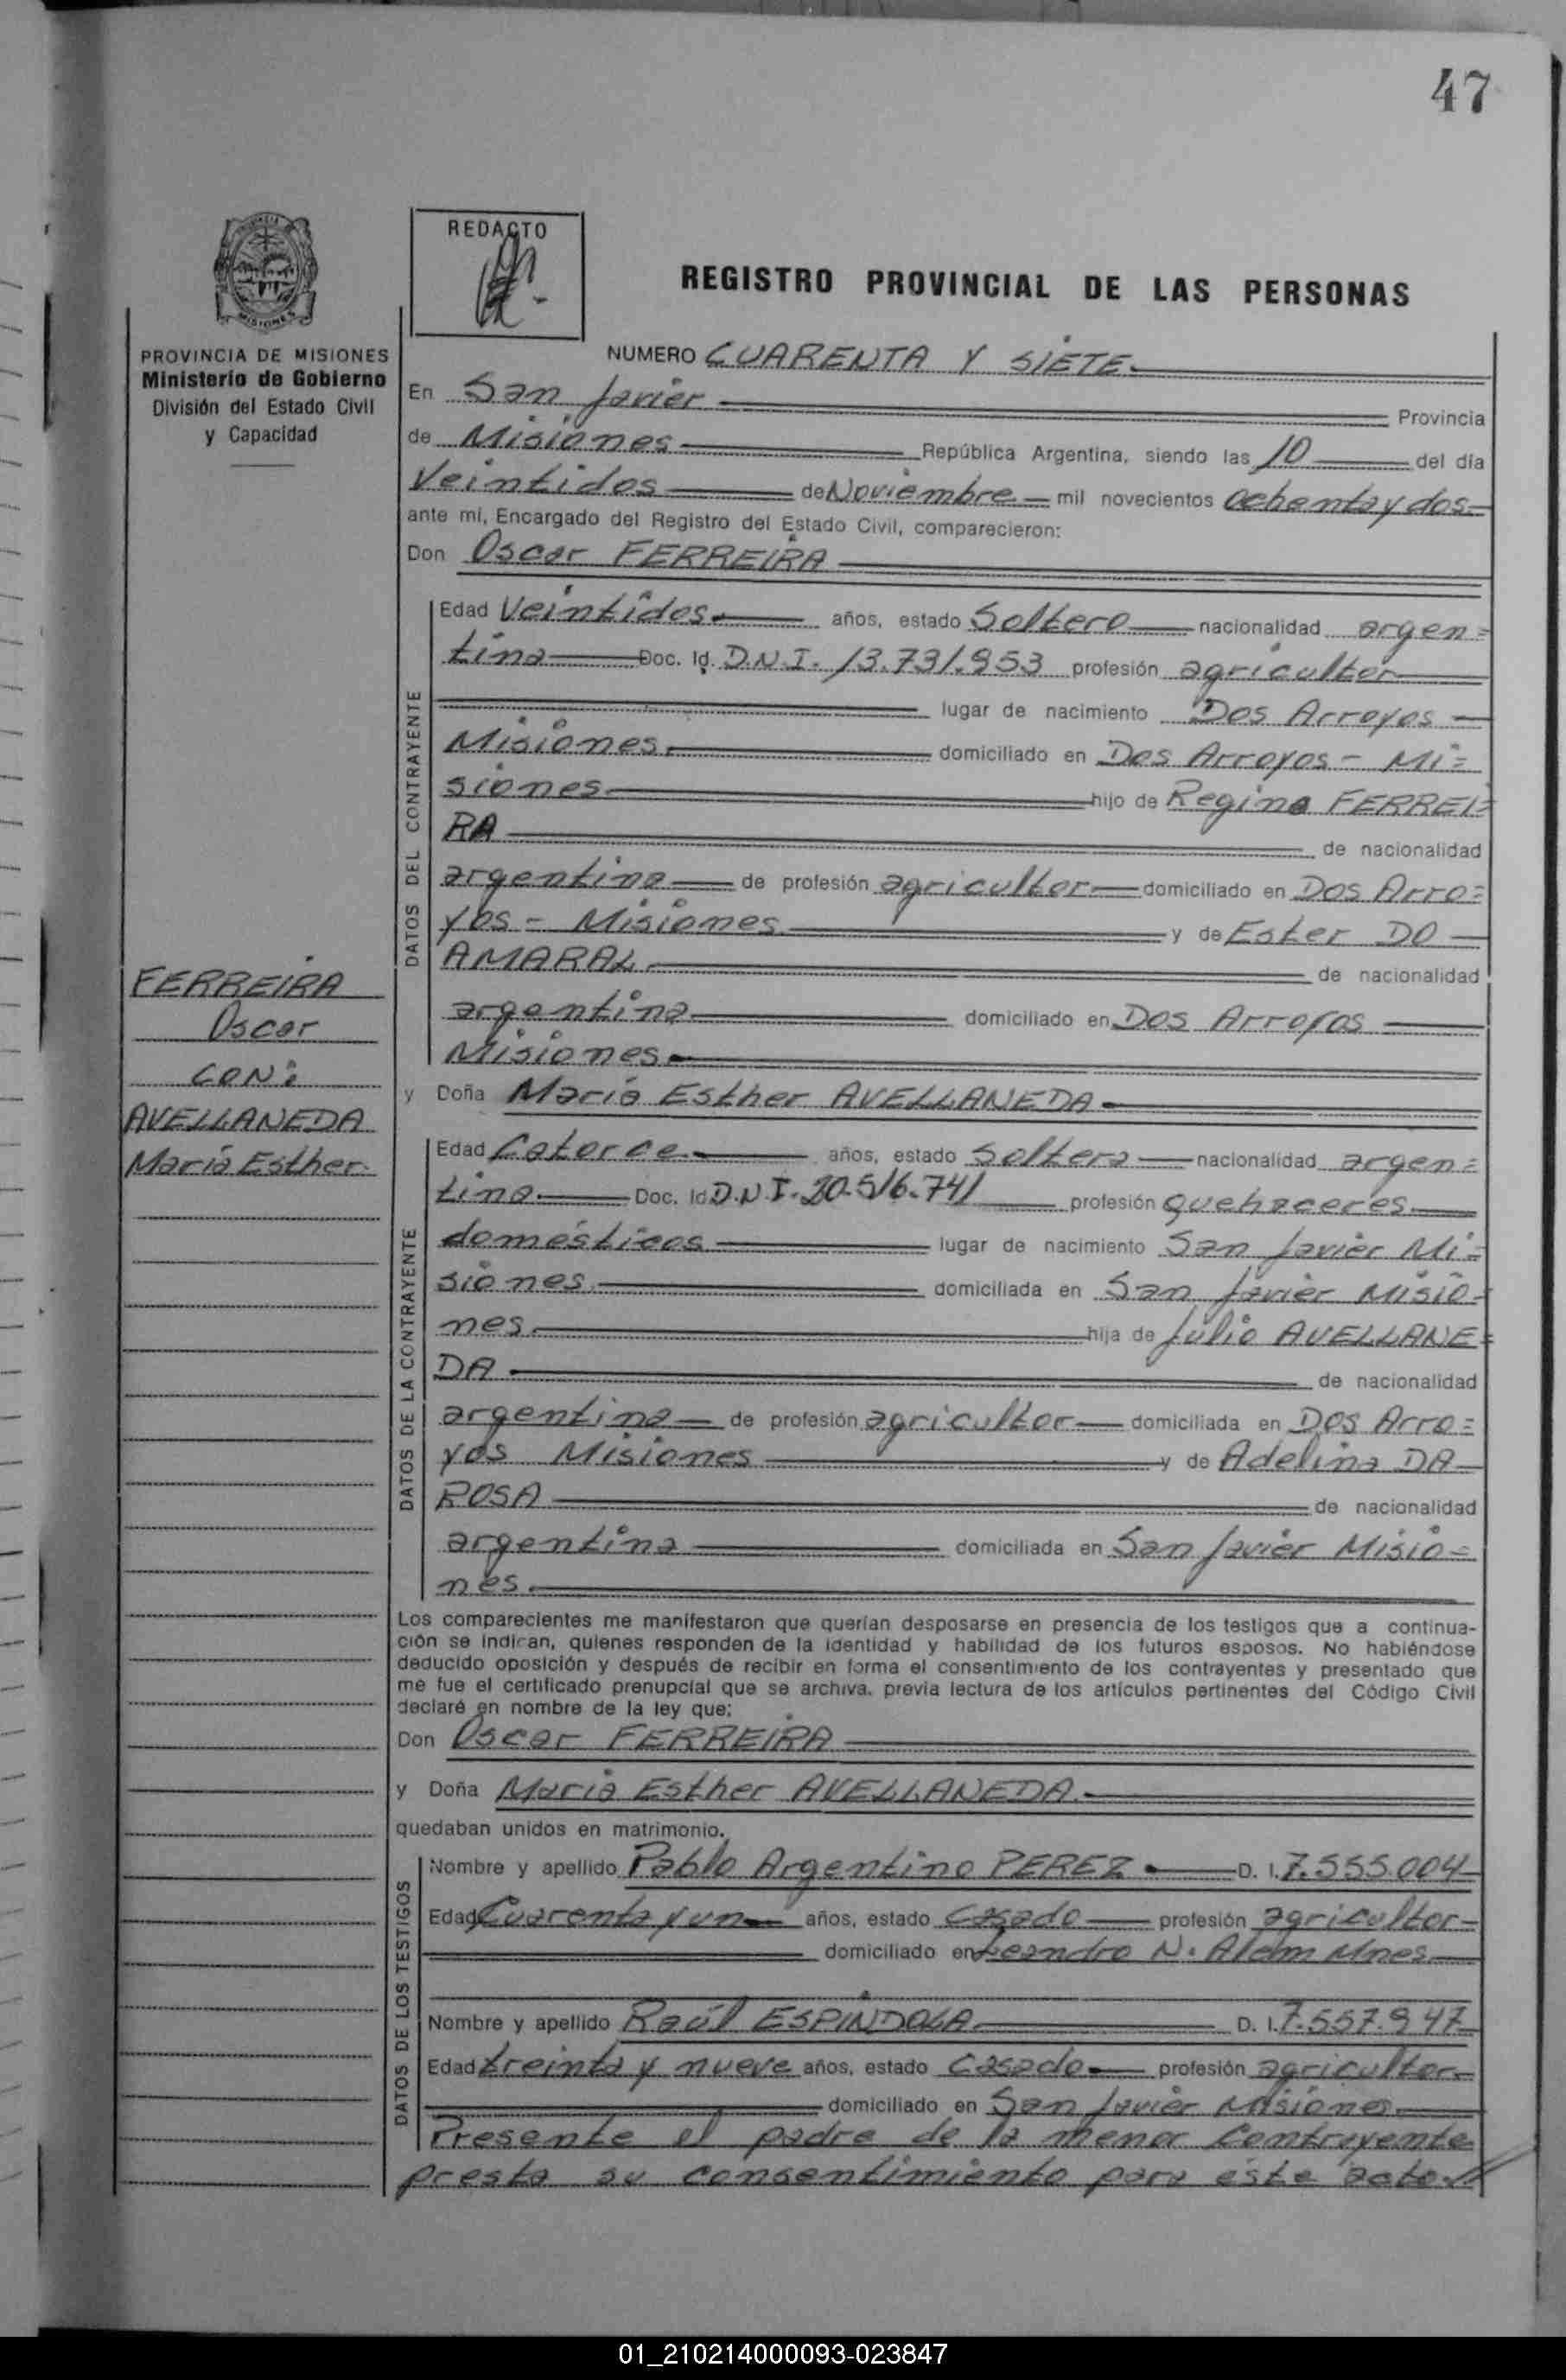 47
REDACTO
REGISTRO PROVINCIAL DE LAS PERSONAS
PROVINCIA DE MISIONES
Ministerio de Gobierno
División del Estado Civil
y Capacidad
NUMERO CUARENTA Y SIETE
En San Javier Provincia
de Misiones República Argentina, siendo las 10 del día
Veintidos de Noviembre mil novecientos ochenta y dos
ante mí, Encargado del Registro del Estado Civil, comparecieron:
Don Oscar FERREIRA
DATOS DEL CONTRAYENTE
Edad Veintidos años, estado Soltero nacionalidad argen=
tina Doc. Id. D.N.I. 13.731.953 profesión agricultor
lugar de nacimiento Dos Arroyos
Misiones domiciliado en Dos Arroyos - Mi=
siones hijo de Regino FERREI=
RA de nacionalidad
argentina de profesión agricultor domiciliado en Dos Arro=
yos - Misiones y de Ester DO
AMARAL de nacionalidad
argentina domiciliado en Dos Arroyos
Misiones
FERREIRA
Oscar
CON:
AVELLANEDA
María Esther
y Doña María Esther AVELLANEDA
DATOS DE LA CONTRAYENTE
Edad Catorce años, estado Soltera nacionalidad argen=
tina Doc. Id D.N.I. 20.516.741 profesión quehaceres
domésticos lugar de nacimiento San Javier Mi=
siones domiciliada en San Javier Misio=
nes hija de Julio AVELLANE=
DA de nacionalidad
argentina de profesión agricultor domiciliada en Dos Arro=
yos Misiones y de Adelina DA
ROSA de nacionalidad
argentina domiciliada en San Javier Misio=
nes
Los comparecientes me manifestaron que querían desposarse en presencia de los testigos que a continua-
ción se indican, quienes responden de la identidad y habilidad de los futuros esposos. No habiéndose
deducido oposición y después de recibir en forma el consentimiento de los contrayentes y presentado que
me fue el certificado prenupcial que se archiva, previa lectura de los artículos pertinentes del Código Civil
declaré en nombre de la ley que:
Don Oscar FERREIRA
y Doña María Esther AVELLANEDA
quedaban unidos en matrimonio.
DATOS DE LOS TESTIGOS
Nombre y apellido Pablo Argentino PEREZ D. I. 7.555.004
Edad Cuarenta y un años, estado Casado profesión agricultor
domiciliado en Leandro N. Alem Mnes
Nombre y apellido Raúl ESPINDOLA D. I. 7.557.947
Edad treinta y nueve años, estado Casado profesión agricultor
domiciliado en San Javier Misiones
Presente el padre de la menor Contrayente
presta su consentimiento para éste acto
01_210214000093-023847